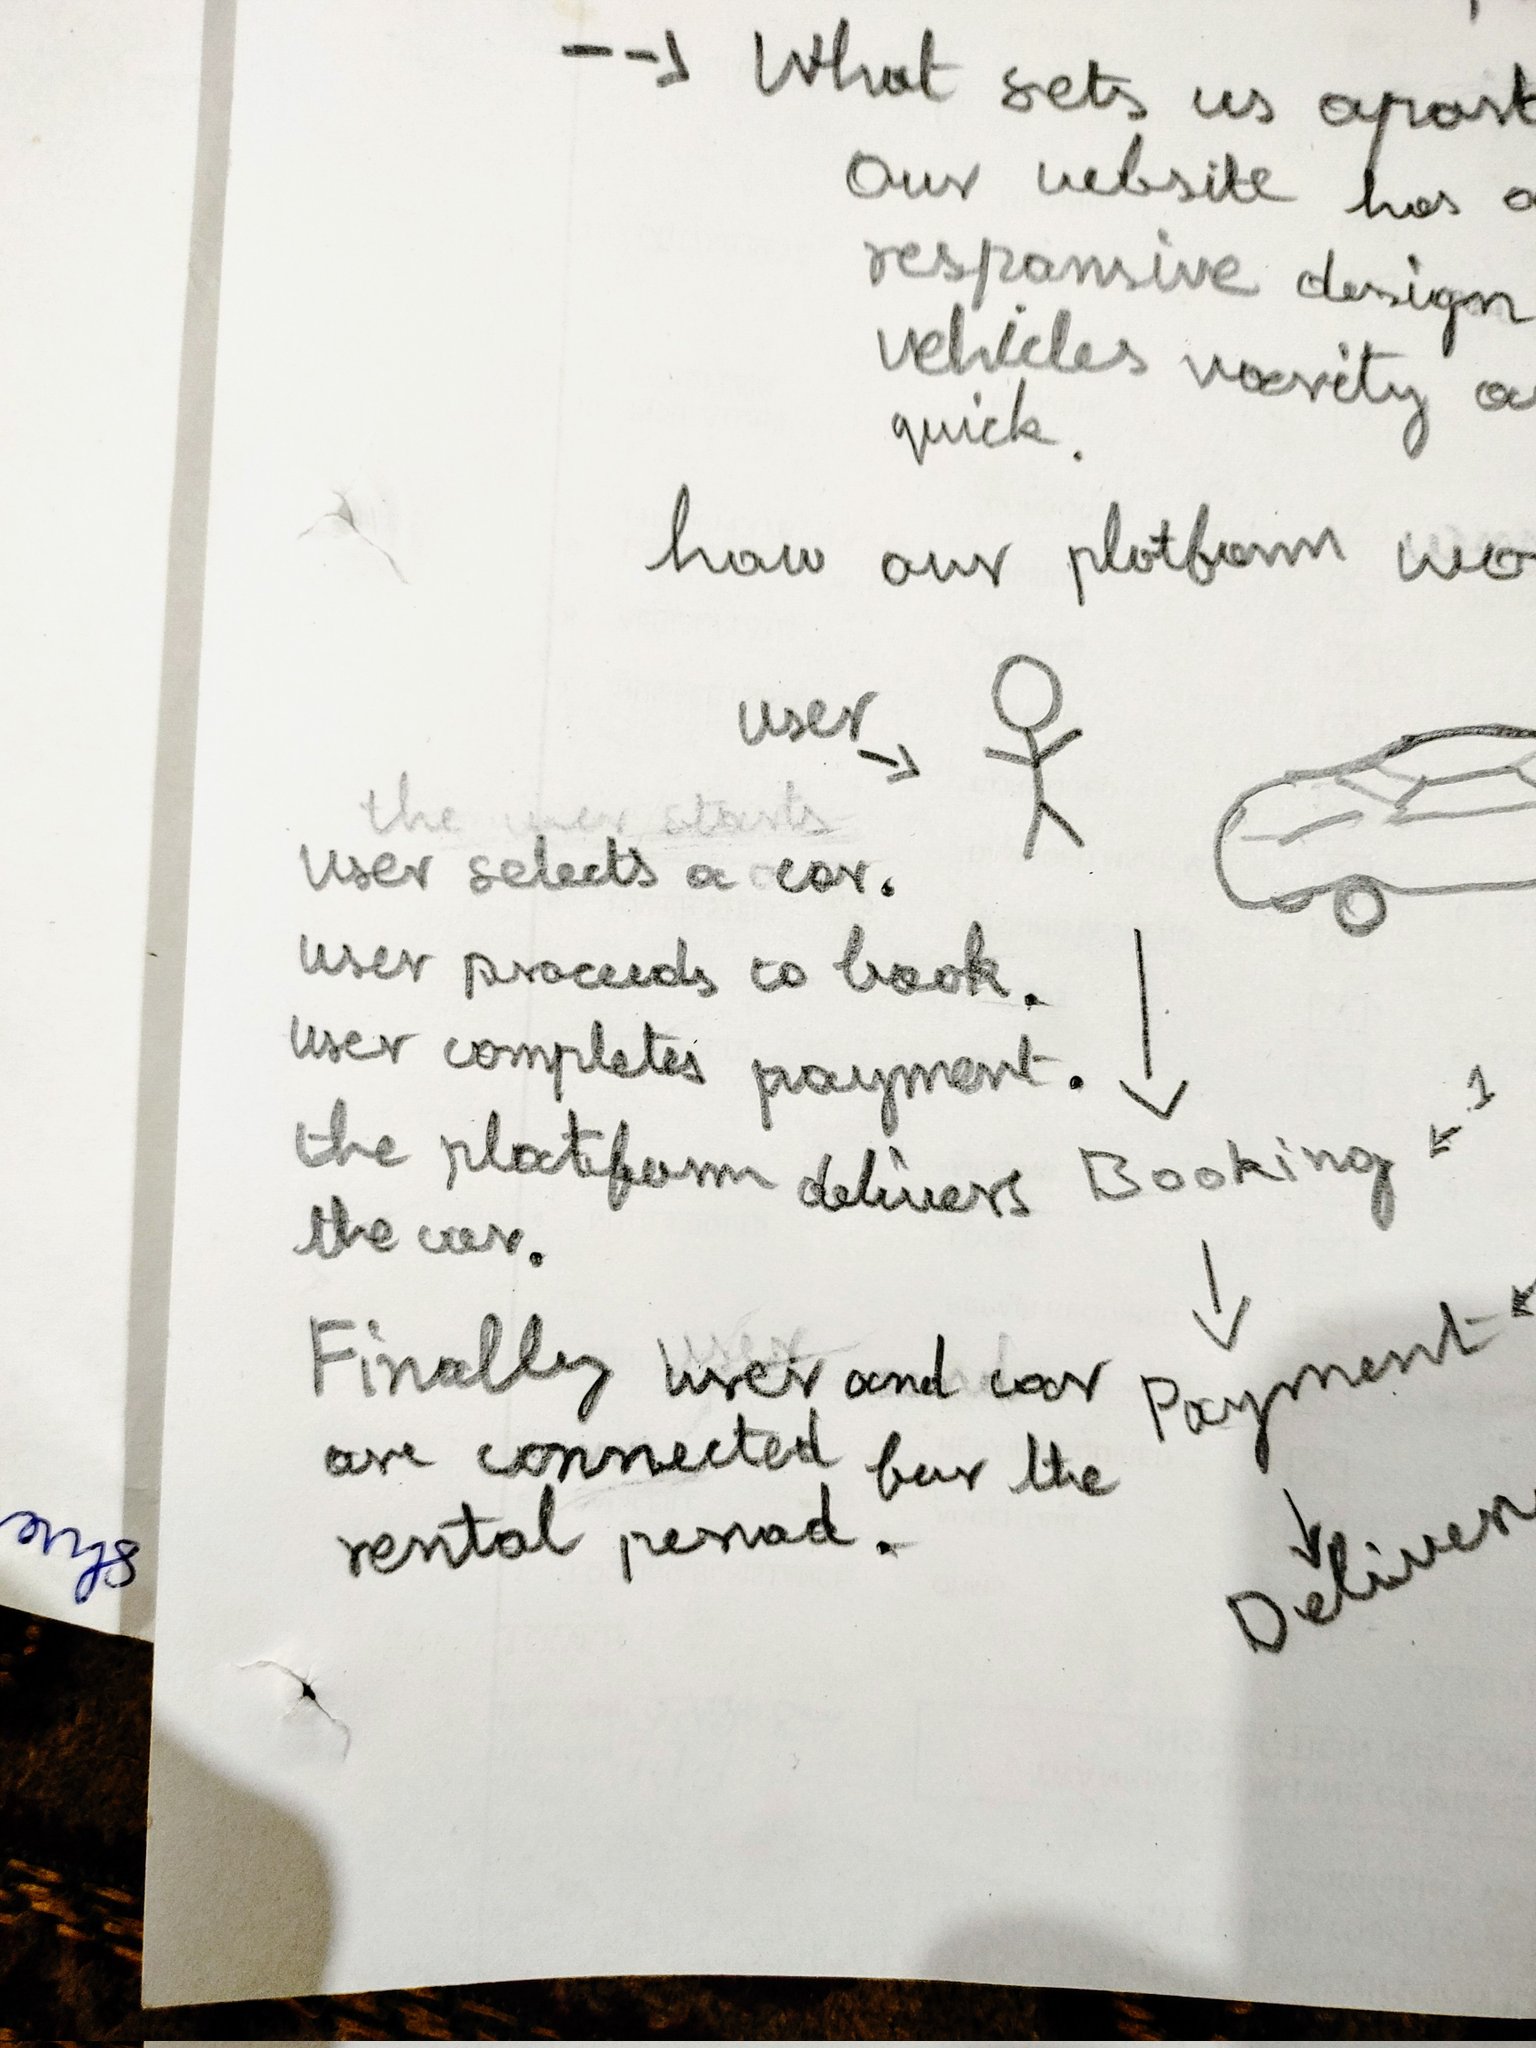 --> What sets us apart
our website has a
responsive design
vehicles varity a
quick.
how our platform wo
user ->
the user starts
user selects a car.
user proceeds to book.
user completes payment.
the platform delivers
the car.
Finally user and car
are connected for the
rental period.
Booking
1
Payment
Deliver